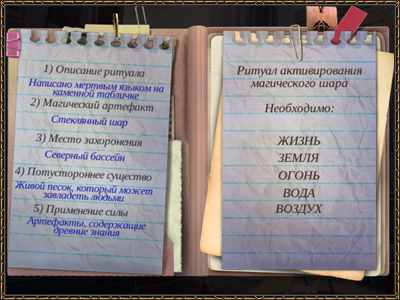 1) Описание ритуала
Написано мертвым языком на
каменной табличке
2) Магический артефакт
Стеклянный шар
3) Место захоронения
Северный бассейн
4) Потустороннее существо
Живой песок, который может
завладеть людьми
5) Применение силы
Артефакты, содержащие
древние знания
Ритуал активирования
магического шара
Необходимо:
ЖИЗНЬ
ЗЕМЛЯ
ОГОНЬ
ВОДА
ВОЗДУХ